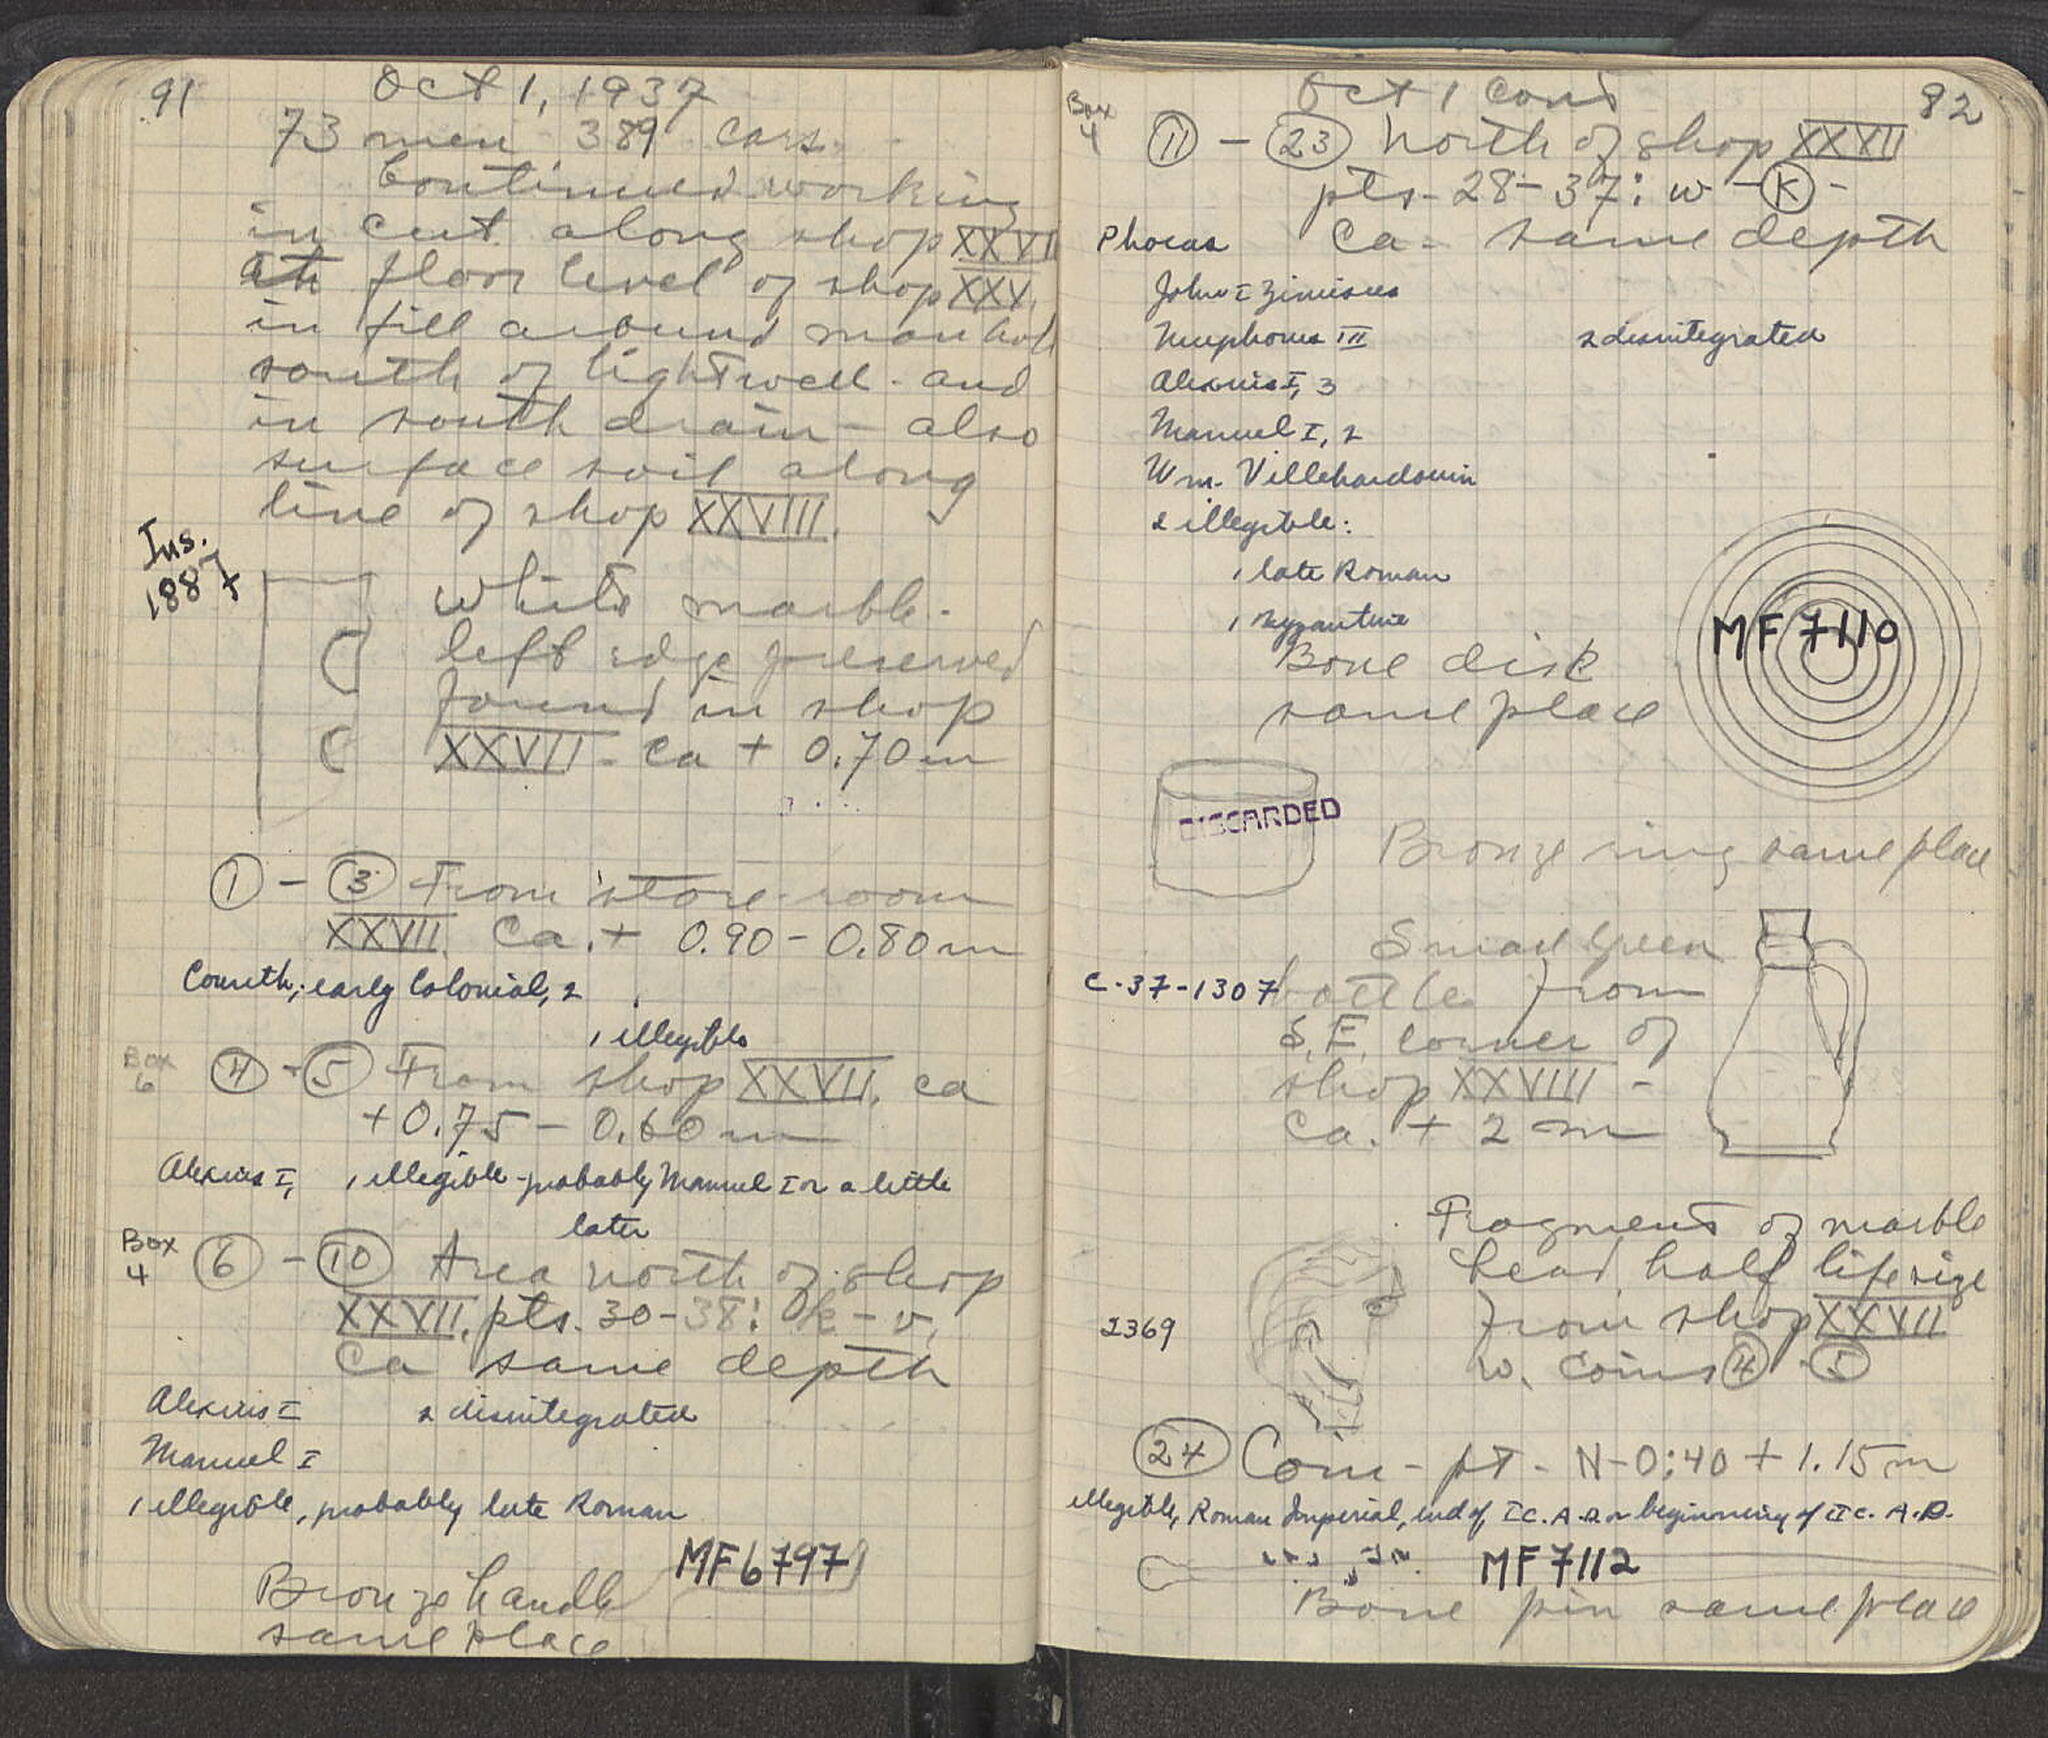 91
Oct 1, 1937
73 men 389 cars.
Continued working
in cut along shop XXVII
at floor level of shop XXV.
in fill around manhole
south of lightwell - and
in south drain - also
surface soil along
line of shop XXVIII.
Ins.
1887
white marble -
left edge preserved
found in shop
XXVII - ca + 0.70 m
1 - 3 From store-room
XXVII. Ca. + 0.90 - 0.80 m
Corinth, early Colonial, 2
1 illegible
Box
6
4 - 5 From shop XXVII. ca
+ 0.75 - 0.60 m
Alexius I, 1 illegible - probably Manuel I or a little
later
Box
4
6 - 10 Area north of shop
XXVII. pts. 30-38: K - v.
Ca same depth
Alexius I 2 disintegrated
Manuel I
1 illegible, probably late Roman
MF 6797
Bronze handle
same place
Oct 1 cont
82
Box
4
11 - 23 North of shop XXVII
pts - 28 - 37: w - K -
Phocas Ca - same depth
John I Zimisces
Nicephorus III 2 disintegrated
Alexius I, 3
Manuel I, 2
Wm. Villehardouin
2 illegible:
1 late Roman
1 Byzantine
MF 7110
Bone disk
same place
DISCARDED
Bronze ring same place
Small green
C-37-1307 bottle from
S.E. corner of
shop XXVIII -
Ca. + 2 m
Fragment of marble
head half life size
2369 from shop XXVII
w. coins 4 - 5
24 Coin - pt - N-0:40 + 1.15 m
illegible, Roman Imperial, end of I C. A.D. or beginning of II C. A.D.
MF 7112
Bone pin same place